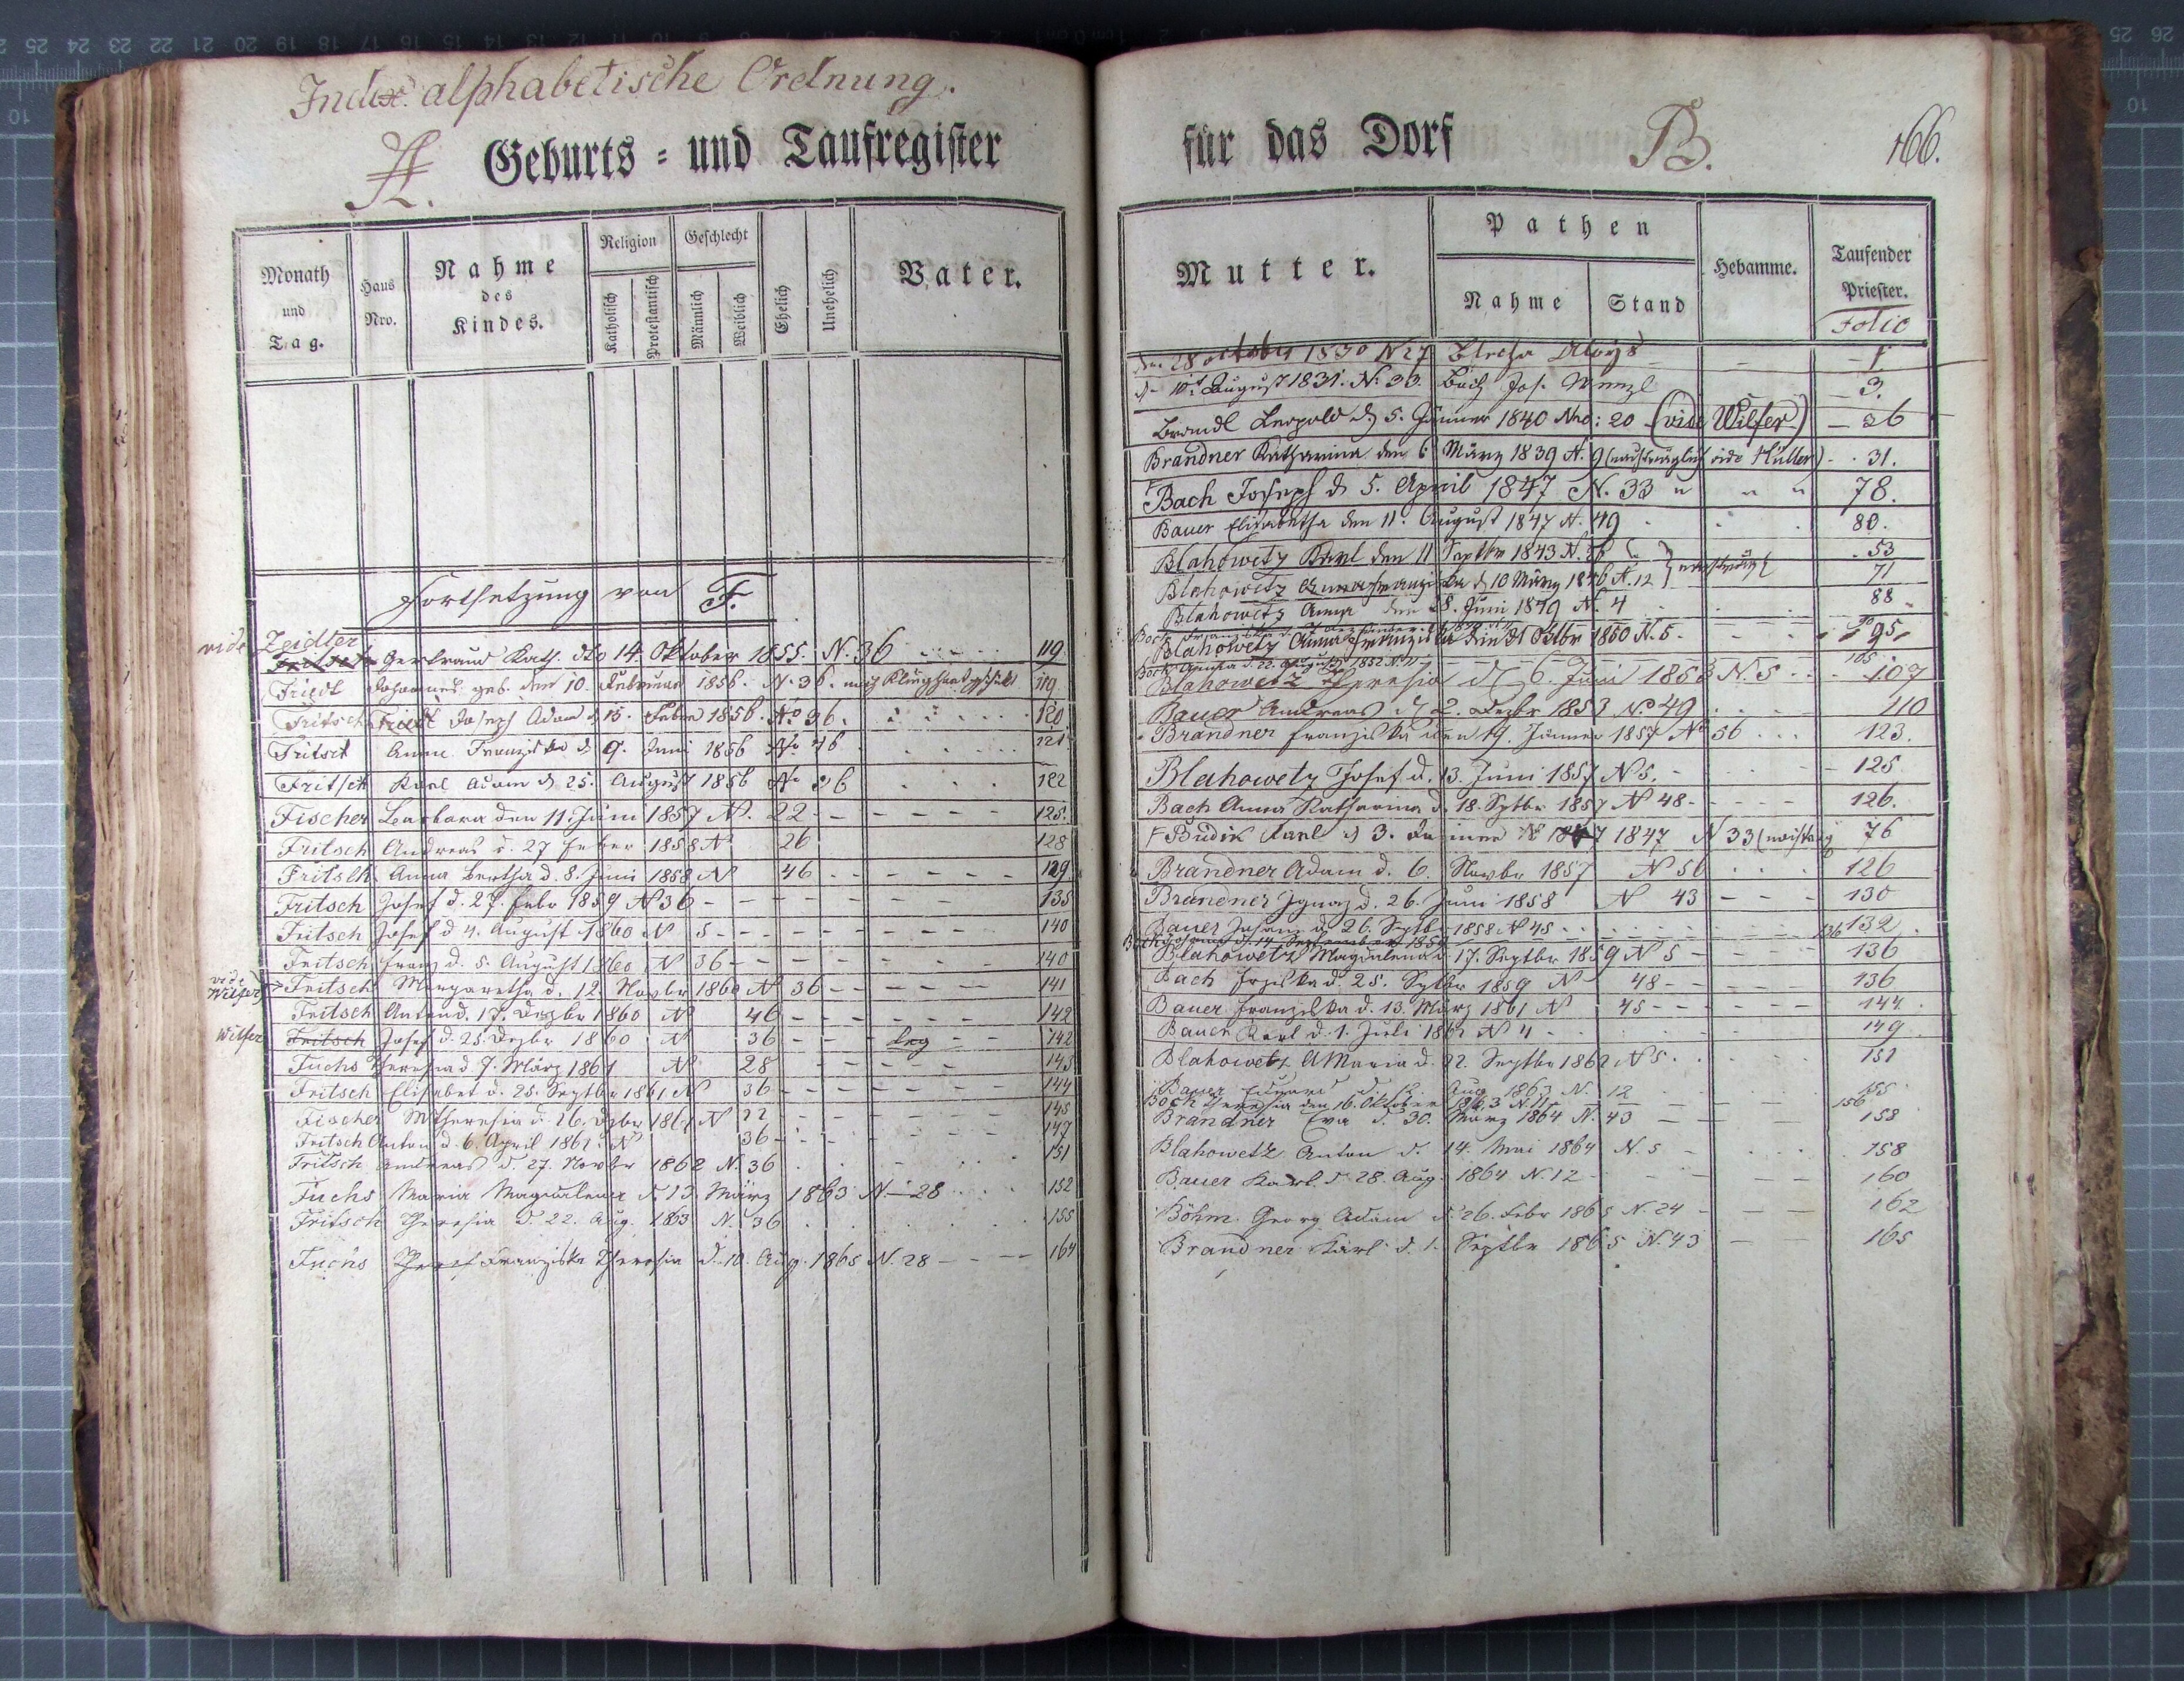 Index alphabetische Ordnung.
A. Geburts = und Taufregister
Monath und Tag.
Haus Nro.
Nahme des Kindes.
Religion
Katholisch
Protestantisch
Geschlecht
Männlich
Weiblich
Ehelich
Unehelich
Vater.
Fortsetzung von F.
vide Zeidler
Fritsch Gertraud Kath. dto 14 Oktober 1855. N. 36 119
Friedl Johannes geb. den 10. Februar 1856. N. 36. nach Klinghart 119
Fritsch Friedl Joseph Adam d 15. Feber 1856. No 36. 120
Fritsch Anna Franziska d 9. Juni 1856 No 46 121
Fritsch Karl Adam d 25. August 1856 No 36 122
Fischer Barbara den 11. Juni 1857 N. 22 125.
Fritsch Andreas d. 27 Feber 1858 N 26 128
Fritsch Anna Bertha d. 8. Juni 1858 N 46 129
Fritsch Josef d. 27. Febr 1859 N 36 135
Fritsch Josef d 4. August 1860 N 5 140
Fritsch Franz d. 5. August 1860 N 36 140
vide Wilfer Fritsch Margaretha d. 12. Novbr 1860 N 36 141
Fritsch Anton d. 17. Dezbr 1860 N 46 142
Wilfer Fritsch Josef d. 25. Dezbr 1860 N 36 leg 142
Fuchs Theresia d. 7. März 1861 N 28 143
Fritsch Elisabet d. 25. Septbr 1861 N 36 144
Fischer M Theresia d. 26. Dzbr 1861 N 22 145
Fritsch Anton d. 6. April 1862. N 36 147
Fritsch Andreas d. 27. Novbr 1862 N. 36 151
Fuchs Maria Magdalena d. 13. März 1863 N. 28 152
Fritsch Theresia d. 22. Aug. 1863 N. 36 155
Fuchs Franziska Theresia d. 10. Aug. 1865 N. 28 164
für das Dorf B. 166.
Mutter.
Pathen
Nahme
Stand
Hebamme.
Taufender Priester.
Folio
den 28 october 1830 N 27 Aloys 1
d. 10t August 1831. N. 33. Bach Jos. Wenzl 3.
Brandl Leopold d 5. Jänner 1840 Nro: 20 (vide Wilfer) 36
Brandner Katharina den 6 März 1839 N. 9 (nachträglich vide Müller) 31.
Bach Joseph d 5. April 1847 N. 33 " " " 78.
Bauer Elisabetha den 11. August 1847 N. 49 80.
Blahowetz Karl den 11 Septbr 1843 N. 26 53
Blahowetz Franziska d 10 März 1846 N. 12 71
Blahowetz Anna den 28. Juni 1849 N. 4 88
Blahowetz Anna Franziska den 21 Oktbr 1850 N. 5 95
Bock d 22. August 1852 N 105
Blahowetz Theresia d 6. Juni 1853 N. 5 107
Bauer Andreas d 2. Dezbr 1853 No 49 110
Brandner Franziska den 19. Jänner 1857 No 56 123.
Blahowetz Josef d. 13. Juni 1857 N 5. 125
Bach Anna Katharina d. 18. Sptbr 1857 N 48 126.
Budik Karl d 3. Jänner 1847 N 33 76
Brandner Adam d. 6. Novbr 1857 N 56 126
Brandner Ignaz d. 26. Juni 1858 N 43 130
Bauer Johann d 26. Septb 1858 N 45 132
Bock Johann d. 14 September 1859 136
Blahowetz Magdalena d 17. Septbr 1859 N 5 136
Bach d. 25. Sptbr 1859 N 48 136
Bauer Franziska d. 13. März 1861 N 45 144
Bauer Karl d. 1. Juli 1862 N 4 149
Blahowetz AMaria d. 22. Septbr 1862 N 5 151
Bauer Eduard d. 12. Aug 1863 N. 12 155
Bock Theresia den 16. Oktober 1863 N 11 156
Brandner Eva d. 30. März 1864 N. 43 158
Blahowetz Anton d. 14. Mai 1864 N. 5 158
Bauer Karl d. 28. Aug. 1864 N. 12 160
Böhm Georg Adam d. 26. Febr 1865 N. 24 162
Brandner Karl d. 1. Septbr 1865 N. 43 165